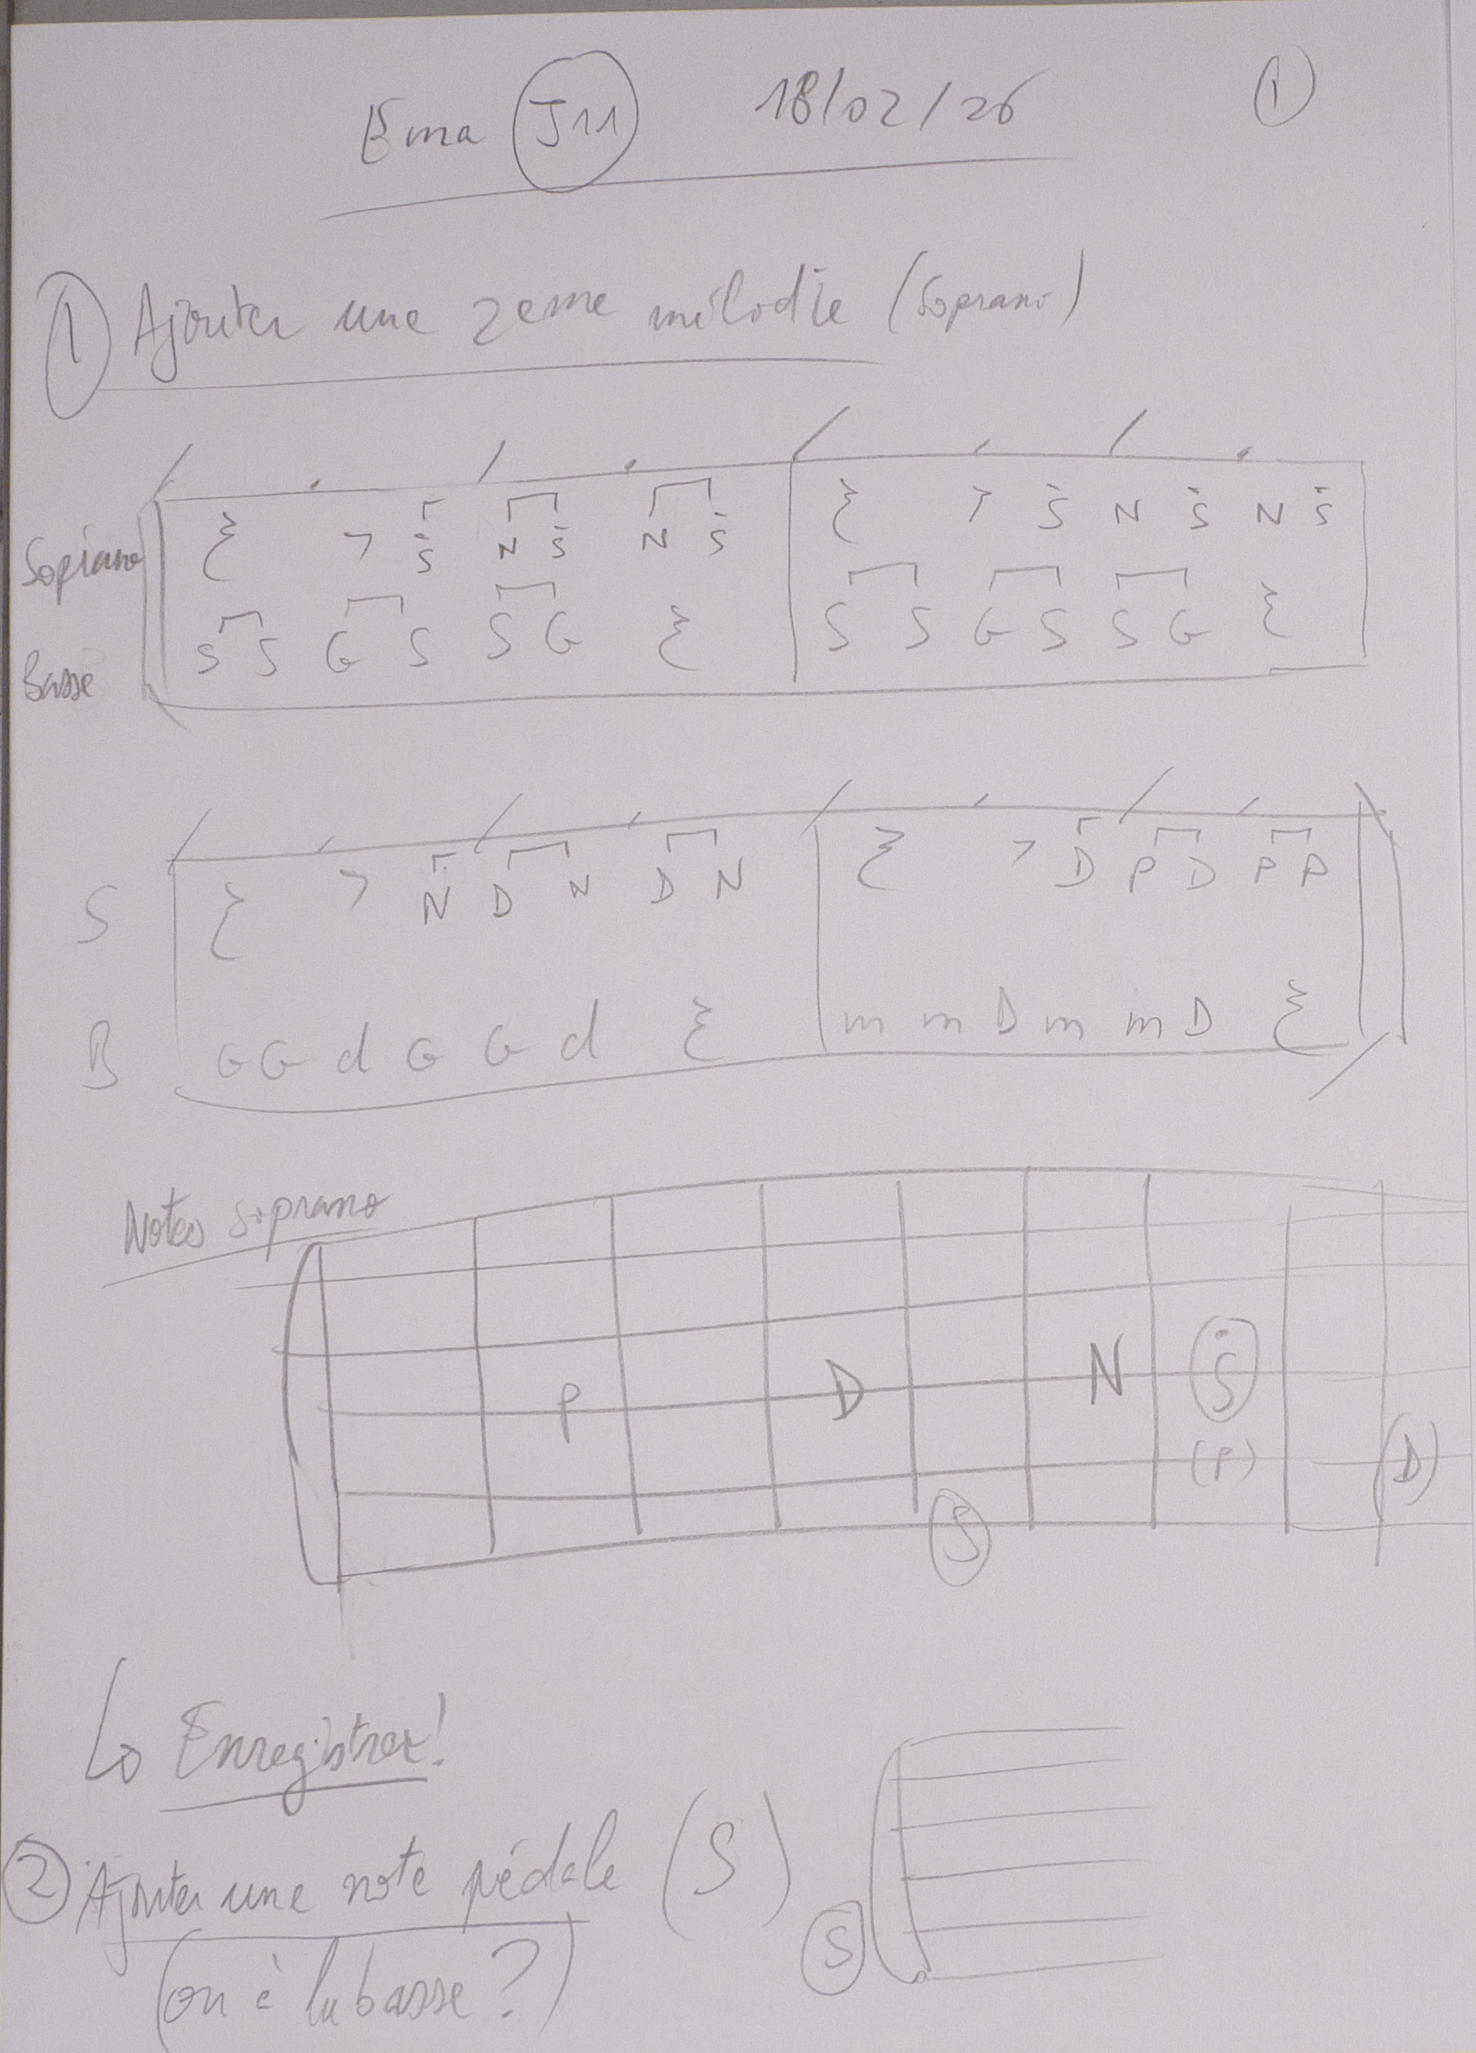 Ema J11 18/02/26 1
1 Ajouter une 2eme mélodie (Soprano)
Soprano Ṡ N Ṡ N Ṡ Ṡ N Ṡ N Ṡ
Basse S S G S S G S S G S S G
S N D N D N D P D P P
B G G d G G d m m D m m D
Notes soprano
P D N Ṡ
(P) (D)
S
Enregistrer!
2 Ajouter une note pédale (S)
S
(ou à la basse?)